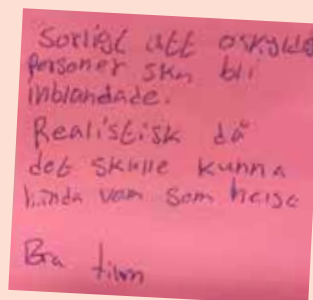 Sorligt att oskylde
personer ska bli
inblandade.
Realistisk då
det skulle kunna
hända vem som helse
Bra film